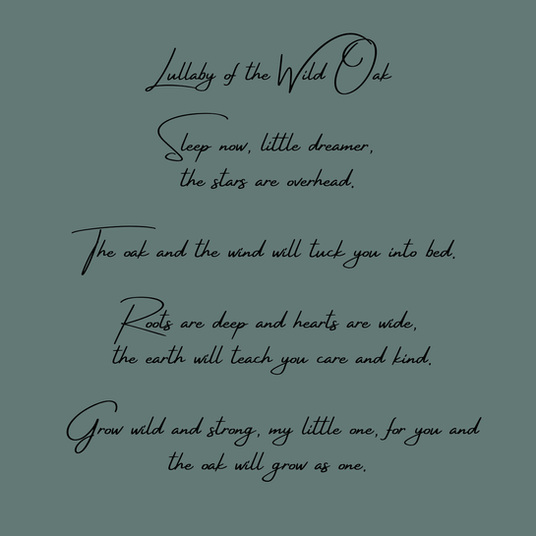 Lullaby of the Wild Oak
Sleep now, little dreamer,
the stars are overhead.
The oak and the wind will tuck you into bed.
Roots are deep and hearts are wide,
the earth will teach you care and kind.
Grow wild and strong, my little one, for you and
the oak will grow as one.